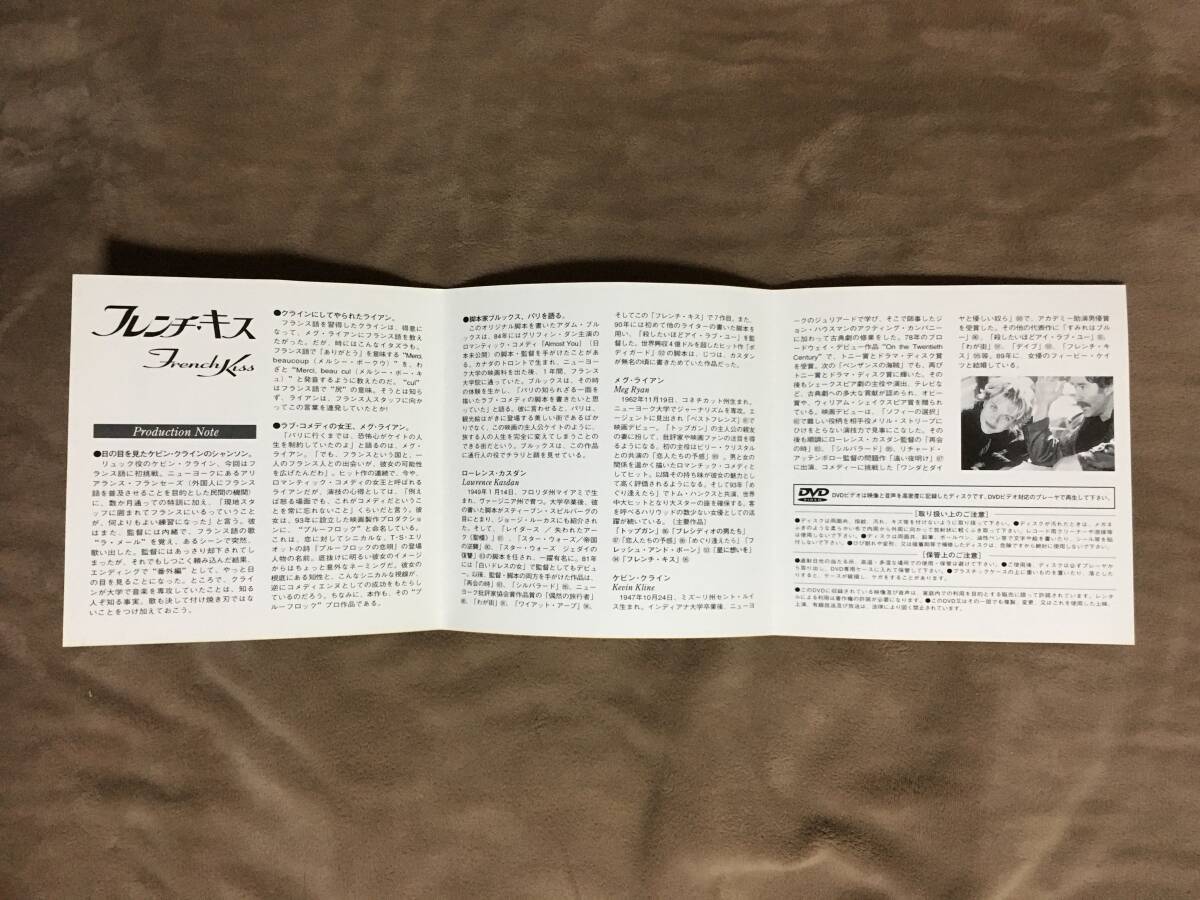 フレンチ・キス
French Kiss
Production Note
●日の目を見たケビン・クラインのシャンソン。
リュック役のケビン・クライン、今回はフ
ランス語に初挑戦。ニューヨークにあるアリ
アランス・フランセーズ(外国人にフランス
語を普及させることを目的とした民間の機関)
に、数か月通っての特訓に加え、「現地スタ
ッフに囲まれてフランスにいるっていうこと
が、何よりもよい練習になった」と言う。彼
はまた、監督には内緒で、フランス語の歌
"ラ・メール"を覚え、あるシーンで突然、
歌い出した。監督にはあっさり却下されてし
まったが、それでもしつこく頼み込んだ結果、
エンディングで"番外編"として、やっと日
の目を見ることになった。ところで、クライ
ンが大学で音楽を専攻していたことは、知る
人ぞ知る事実。歌も決して付け焼き刃ではな
いことをつけ加えておこう。
●クラインにしてやられたライアン。
フランス語を習得したクラインは、得意に
なって、メグ・ライアンにフランス語を教え
たがった。だが、時にはこんなイタズラも。
フランス語で「ありがとう」を意味する"Merci,
beaucoup(メルシー・ボークウ)"を、わ
ざと"Merci, beau cul(メルシー・ボー・キ
ュ)"と発音するように教えたのだ。"cul"
はフランス語で"尻"の意味。そうとは知ら
ず、ライアンは、フランス人スタッフに向か
ってこの言葉を連発していたとか!
●ラブ・コメディの女王、メグ・ライアン。
「パリに行くまでは、恐怖心がケイトの人
生を制約していたのよ」と語るのは、メグ・
ライアン。「でも、フランスという国と、一
人のフランス人との出会いが、彼女の可能性
を広げたんだわ」。ヒット作の連続で、今や、
ロマンティック・コメディの女王と呼ばれる
ライアンだが、演技の心得としては、「例え
ば怒る場面でも、これがコメディだというこ
とを常に忘れないこと」くらいだと言う。彼
女は、93年に設立した映画製作プロダクショ
ンに、"プルーフロック"と命名している。
これは、恋に対してシニカルな、T・S・エリ
オットの詩「プルーフロックの恋唄」の登場
人物の名前。底抜けに明るい彼女のイメージ
からはちょっと意外なネーミングだ。彼女の
根底にある知性と、こんなシニカルな視線が、
逆にコメディエンヌとしての成功をもたらし
ているのだろう。ちなみに、本作も、その"プ
ルーフロック"プロ作品である。
●脚本家ブルックス、パリを語る。
このオリジナル脚本を書いたアダム・ブル
ックスは、84年にはグリフィン・ダン主演の
ロマンティック・コメディ「Almost You」(日
本未公開)の脚本・監督を手がけたことがあ
る。カナダのトロントで生まれ、ニューヨー
ク大学の映画科を出た後、1年間、フランス
大学院に通っていた。ブルックスは、その時
の体験を生かし、「パリの知られざる一面を
描いたラブ・コメディの脚本を書きたいと思
っていた」と語る。彼に言わせると、パリは、
観光絵はがきに登場する美しい街であるばか
りでなく、この映画の主人公ケイトのように、
旅する人の人生を完全に変えてしまうことの
できる街だという。ブルックスは、この作品
に通行人の役でチラリと顔を見せている。
ローレンス・カスダン
Lawrence Kasdan
1949年1月14日、フロリダ州マイアミで生
まれ、ヴァージニア州で育つ。大学卒業後、彼
の書いた脚本がスティーブン・スピルバーグの
目にとまり、ジョージ・ルーカスにも紹介され
た。そして、「レイダース/失われたアー
ク《聖櫃》」(81)、「スター・ウォーズ/帝国
の逆襲」(80)、「スター・ウォーズ ジェダイの
復讐」(83)の脚本を任され、一躍有名に。81年
には「白いドレスの女」で監督としてもデビュ
ー。以後、監督・脚本の両方を手がけた作品は、
「再会の時」(83)、「シルバラード」(85)、ニュー
ヨーク批評家協会賞作品賞の「偶然の旅行者」
(88)、「わが街」(91)、「ワイアット・アープ」(94)、
そしてこの「フレンチ・キス」で7作目。また、
90年には初めて他のライターの書いた脚本を
用い、「殺したいほどアイ・ラブ・ユー」を監
督した。世界興収4億ドルを超したヒット作「ボ
ディガード」(92)の脚本は、じつは、カスダン
が無名の頃に書きためていた作品だった。
メグ・ライアン
Meg Ryan
1962年11月19日、コネチカット州生まれ。
ニューヨーク大学でジャーナリズムを専攻。エ
ージェントに見出され「ベストフレンズ」(81)で
映画デビュー。「トップガン」の主人公の親友
の妻に扮して、批評家や映画ファンの注目を得
るようになる。初の主役はビリー・クリスタル
との共演の「恋人たちの予感」(89)。男と女の
関係を温かく描いたロマンチック・コメディと
してヒット。以降その持ち味が彼女の魅力とし
て高く評価されるようになる。そして93年「め
ぐり逢えたら」でトム・ハンクスと共演、世界
中大ヒットとなり大スターの座を確保する。客
を呼べるハリウッドの数少ない女優としての活
躍が続いている。〔主要作品〕
「トップガン」(86)「プレシディオの男たち」
(88)「恋人たちの予感」(89)「めぐり逢えたら」「フ
レッシュ・アンド・ボーン」(93)「星に想いを」
(94)「フレンチ・キス」(95)
ケビン・クライン
Kevin Kline
1947年10月24日、ミズーリ州セント・ルイ
ス生まれ。インディアナ大学卒業後、ニューヨ
ークのジュリアードで学び、そこで師事したジ
ョン・ハウスマンのアクティング・カンパニー
に加わって古典劇の修業をした。78年のブロ
ードウェイ・デビュー作品"On the Twentieth
Century"で、トニー賞とドラマ・ディスク賞
を受賞。次の「ペンザンスの海賊」でも、再び
トニー賞とドラマ・ディスク賞に輝いた。その
後もシェークスピア劇の主役や演出、テレビな
ど、古典劇への多大な貢献が認められ、オビー
賞や、ウィリアム・シェイクスピア賞を贈られ
ている。映画デビューは、「ソフィーの選択」
(82)で難しい役柄を相手役メリル・ストリープに
ひけをとらない演技力で見事にこなした。その
後も順調にローレンス・カスダン監督の「再会
の時」(83)、「シルバラード」(85)、リチャード・
アッテンボロー監督の問題作「遠い夜明け」(87)
に出演、コメディーに挑戦した「ワンダとダイ
ヤと優しい奴ら」(88)で、アカデミー助演男優賞
を受賞した。その他の代表作に「すみれはブル
ー」(86)、「殺したいほどアイ・ラブ・ユー」(90)、
「わが街」(91)、「デイブ」(93)、「フレンチ・キ
ス」95等。89年に、女優のフィービー・ケイ
ツと結婚している。
DVD VIDEO DVDビデオは映像と音声を高密度に記録したディスクです。DVDビデオ対応のプレーヤで再生して下さい。
[取り扱い上のご注意]
●ディスクは両面共、指紋、汚れ、キズ等を付けないように取り扱って下さい。●ディスクが汚れたときは、メガネふ
きのような柔らかい布で内周から外周に向かって放射状に軽くふき取って下さい。レコード用クリーナーや溶剤等
は使用しないで下さい。●ディスクは両面共、鉛筆、ボールペン、油性ペン等で文字や絵を書いたり、シール等を貼
付しないで下さい。●ひび割れや変形、又は接着剤等で補修したディスクは、危険ですから絶対に使用しないで下さい。
[保管上のご注意]
●直射日光の当たる所、高温・多湿な場所での使用・保管は避けて下さい。●ご使用後、ディスクは必ずプレーヤか
ら取り出し、DVD専用ケースに入れて保管して下さい。●プラスチックケースの上に重いものを置いたり、落とした
りすると、ケースが破損し、ケガをすることがあります。
●このDVDに収録されている映像及び音声は、家庭内での利用を目的とする販売に限って許諾されています。レンタ
ルによる利用は著作権の許諾が必要になります。●このDVD又はその一部でも複製、変更、又はこれを使用した上映、
上演、有線放送及び放送は、法律により固く禁止されています。